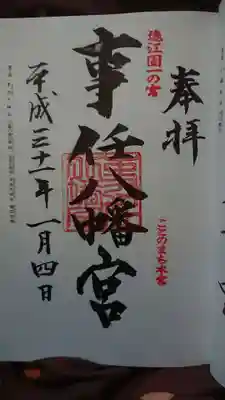 奉拝
遠江国一の宮
ことのまち本宮
事任八幡宮
平成三十一年一月四日